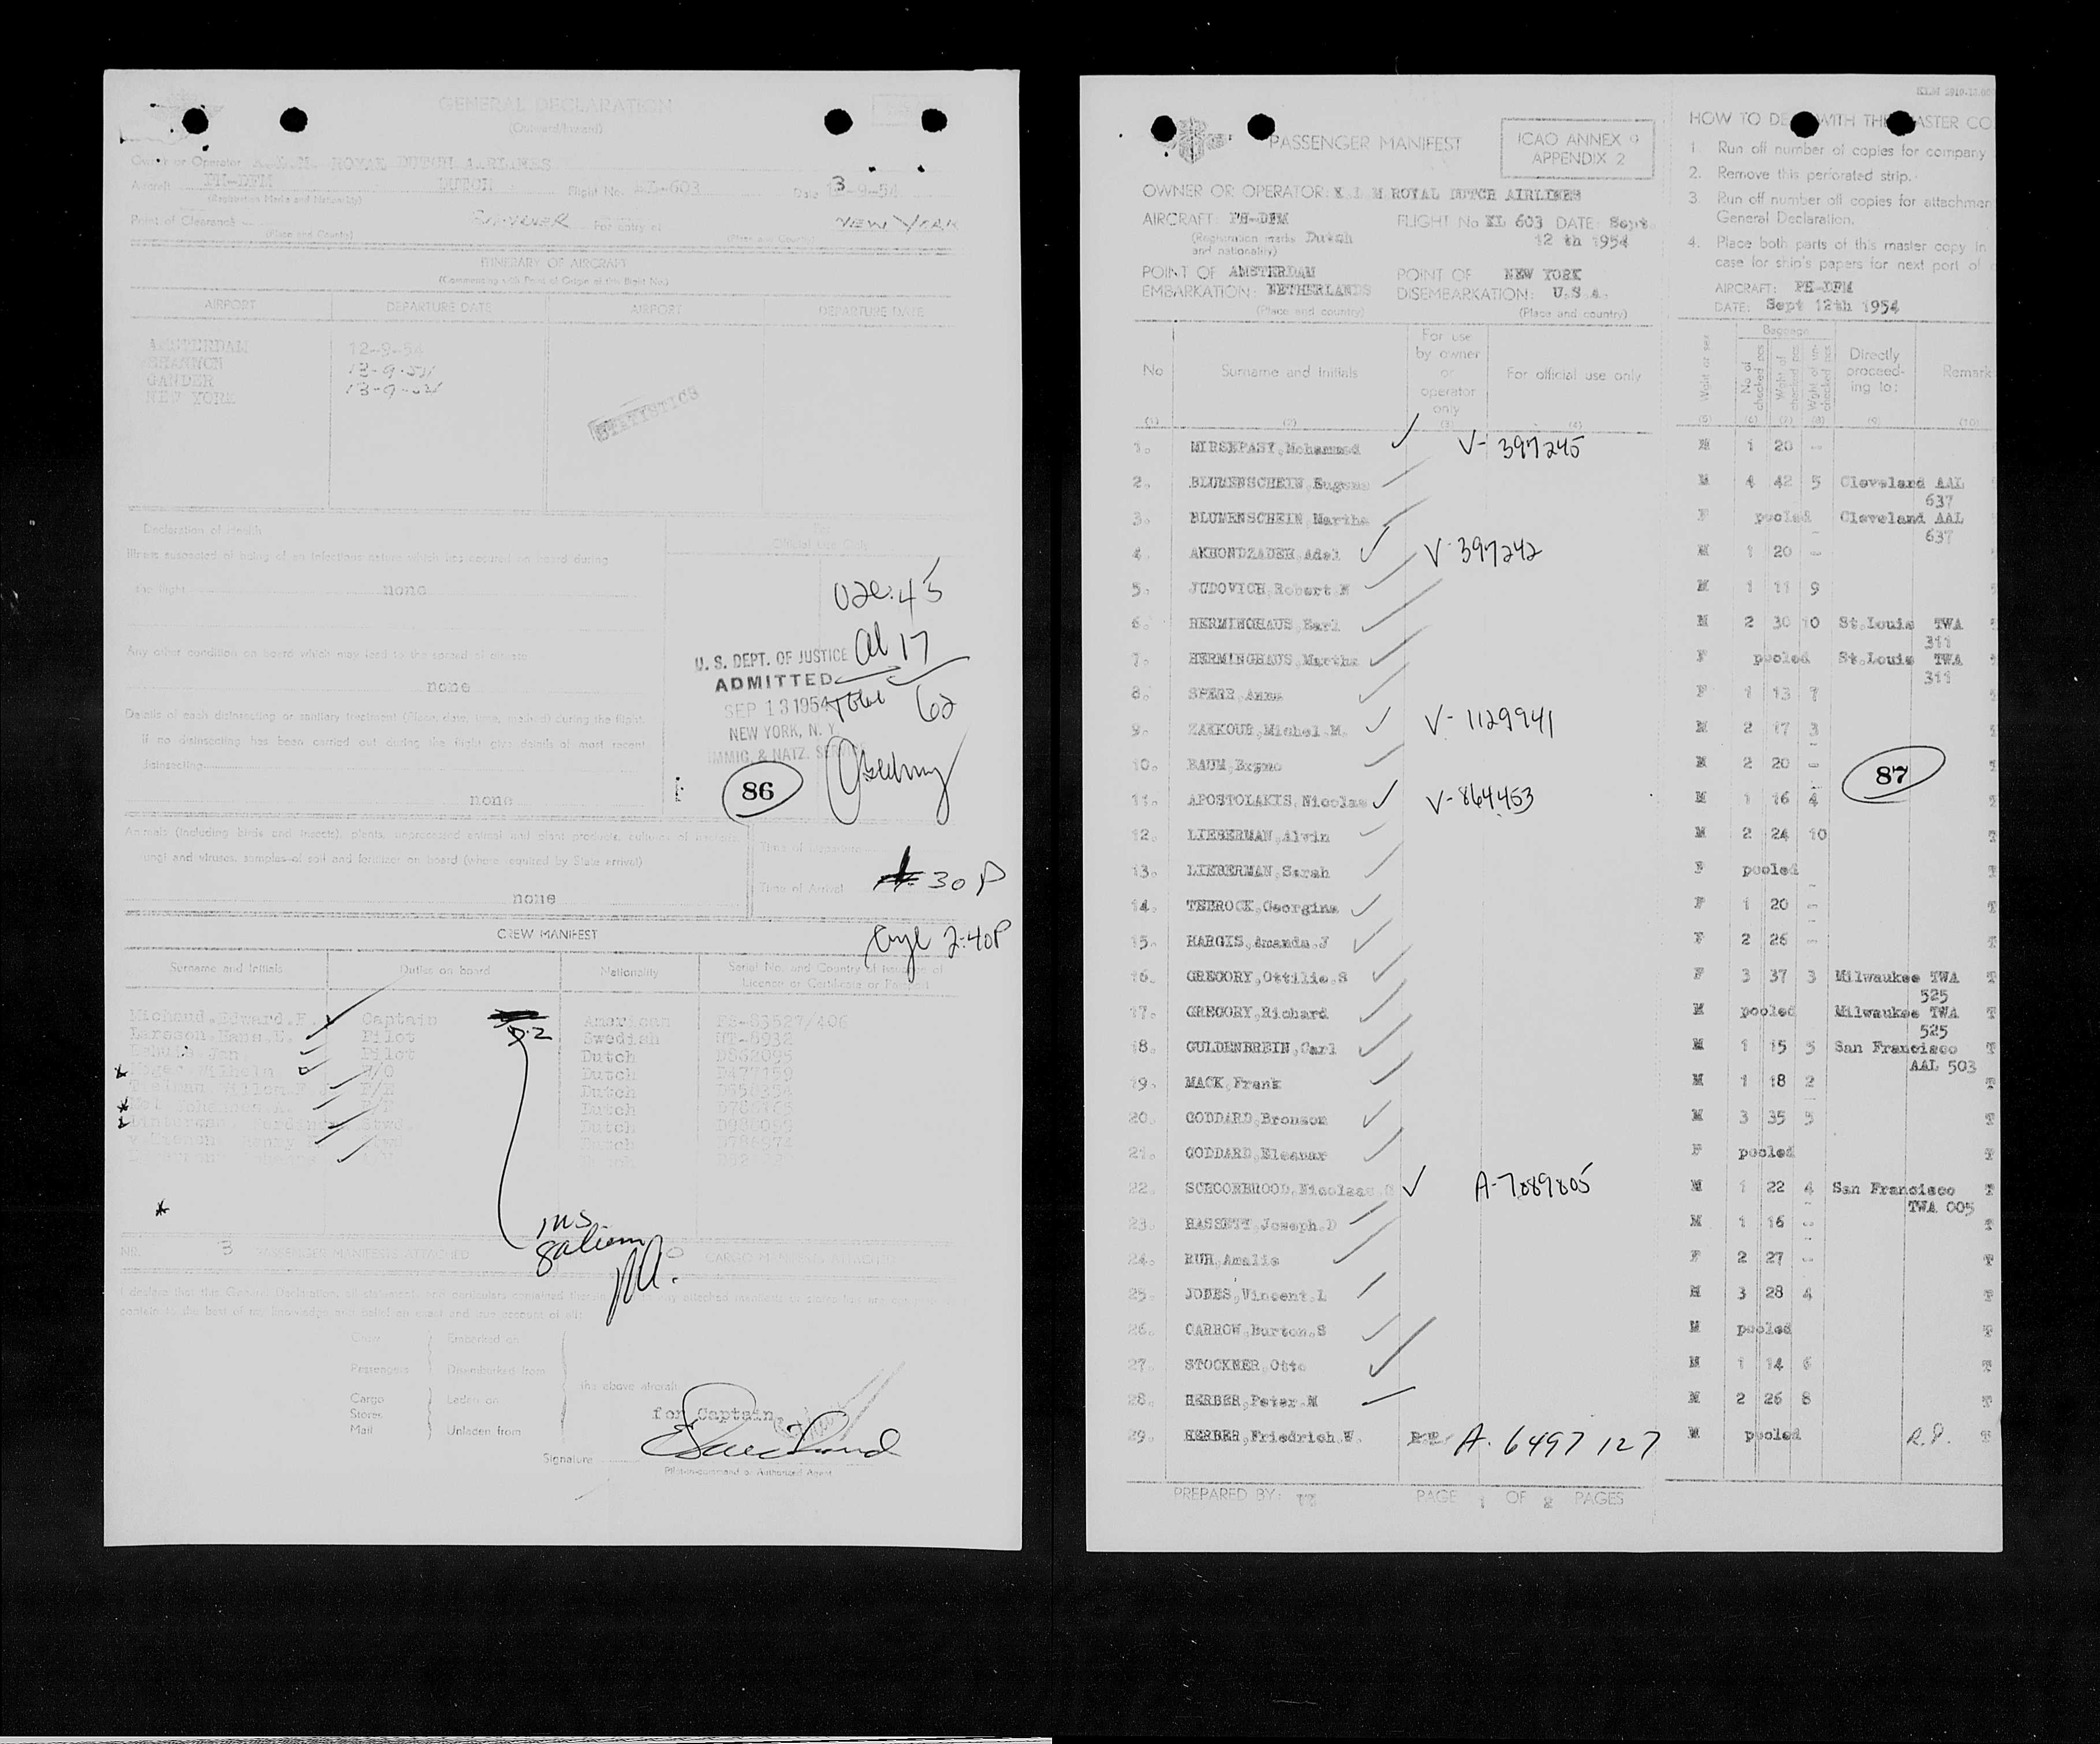 GENERAL DECLARATION
(Outward/Inward)
Owner or Operator K.L.M. ROYAL DUTCH AIRLINES
Aircraft PH-DFM DUTCH Flight No. KL-603 Date 13-9-54
(Registration Marks and Nationality)
Point of Clearance For entry at NEW YORK
(Place and Country) (Place and Country)
ITINERARY OF AIRCRAFT
(Commencing with Point of Origin of this Flight No.)
AIRPORT DEPARTURE DATE AIRPORT DEPARTURE DATE
AMSTERDAM 12-9-54
SHANNON 13-9-54
GANDER 13-9-54
NEW YORK
STATISTICS
Declaration of Health
For Official Use Only
Illness suspected of being of an infectious nature which has occured on board during
the flight none
Any other condition on board which may lead to the spread of disease
none
Details of each disinsecting or sanitary treatment (Place, date, time, method) during the flight.
If no disinsecting has been carried out during the flight give details of most recent
disinsecting
none
USC. 45
Al 17
Total 62
U. S. DEPT. OF JUSTICE
ADMITTED
SEP 13 1954
NEW YORK, N. Y.
IMMIG. & NATZ. SERVICE
86
Animals (including birds and insects), plants, unprocessed animal and plant products, cultures of bacteria,
fungi and viruses, samples of soil and fertilizer on board (where required by State arrival)
none
Time of Departure
Time of Arrival 30 P
2:40P
CREW MANIFEST
Surname and Initials Duties on board Nationality Serial No. and Country of Issuance of
Licence or Certificate or Passport
Michaud, Edward.F. Captain American FE-83527/406
Larsson, Hans.U. Pilot Swedish UT-6932
Jan. Pilot Dutch D862095
Wilhelm R/O Dutch D477159
Tieiman Willem.F. F/E Dutch D658354
Johannes.A. F/E Dutch
Ferdinand Stwd. Dutch D980095
Henry Dutch D786974
D-2
NR. 3 PASSENGER MANIFESTS ATTACHED 0 CARGO MANIFESTS ATTACHED
Crew Embarked on
Passengers Disembarked from
the above aircraft
Cargo Laden on
Stores
Mail Unladen from
for Captain,
Signature
Pilot-in-command or Authorized Agent
PASSENGER MANIFEST
ICAO ANNEX 9
APPENDIX 2
OWNER OR OPERATOR: K L M ROYAL DUTCH AIRLINES
AIRCRAFT: PH-DFM FLIGHT No KL 603 DATE: Sept.
(Registration marks Dutch 12 th 1954
and nationality)
POINT OF AMSTERDAM POINT OF NEW YORK
EMBARKATION: NETHERLANDS DISEMBARKATION: U.S A.
(Place and country) (Place and country)
No Surname and Initials For use by owner or operator only For official use only
(1) (2) (3) (4)
1. MIRSEPASY, Mohammed V- 397245
2. BLUMENSCHEIN, Eugene
3. BLUMENSCHEIN, Martha
4. AKHONDZADEH, Adel V- 397242
5. JUDOVICH, Robert M
6. HERMINGHAUS, Earl
7. HERMINGHAUS, Martha
8. SPERR, Anna
9. ZAKKOUR, Michel.M. V- 1129941
10. BAUM, Bruno
11. APOSTOLAKIS, Nicolas V-864453
12. LIEBERMAN, Alvin
13. LIEBERMAN, Sarah
14. TEEROCK, Georgina
15. HARGIS, Amanda.J
16. GREGORY, Ottilie.S
17. GREGORY, Richard
18. GULDENBREIN, Carl
19. MACK, Frank
20. GODDARD, Bronson
21. GODDARD, Eleanor
22. SCHOORBROOD, Nicolaas A-7089805
23. HASSETT, Joseph.D
24. RUH, Amalie
25. JONES, Vincent.L
26. CARROW, Burton.S
27. STOCKNER, Otto
28. HERBER, Peter.M
29. HERBER, Friedrich.W. A. 6497127
PREPARED BY: PAGE 1 OF 2 PAGES
KLM
HOW TO DE WITH THE MASTER CO
1 Run off number of copies for company
2. Remove this perforated strip.
3. Run off number off copies for attachmen
General Declaration.
4. Place both parts of this master copy in
case for ship's papers for next port of
AIRCRAFT: PH-DFM
DATE: Sept 12th 1954
Baggage
Wght. or sex No. of checked pcs Wght of checked pcs Wght of un-checked pcs Directly proceed-ing to: Remark
(5) (6) (7) (8) (9) (10)
M 1 20 -
M 4 42 5 Cleveland AAL
637
F pooled Cleveland AAL
637
M 1 20 -
M 1 11 9
M 2 30 10 St.Louis TWA
311
F pooled St.Louis TWA
311
F 1 13 7
M 2 17 3
M 2 20 -
87
M 1 16 4
M 2 24 10
F pooled
F 1 20 -
F 2 26 -
F 3 37 3 Milwaukee TWA
525
M pooled Milwaukee TWA
525
M 1 15 5 San Francisco
AAL 503
M 1 18 2
M 3 35 5
F pooled
M 1 22 4 San Francisco
TWA 005
M 1 16 -
F 2 27 -
M 3 28 4
M pooled
M 1 14 6
M 2 26 8
M pooled R.P.